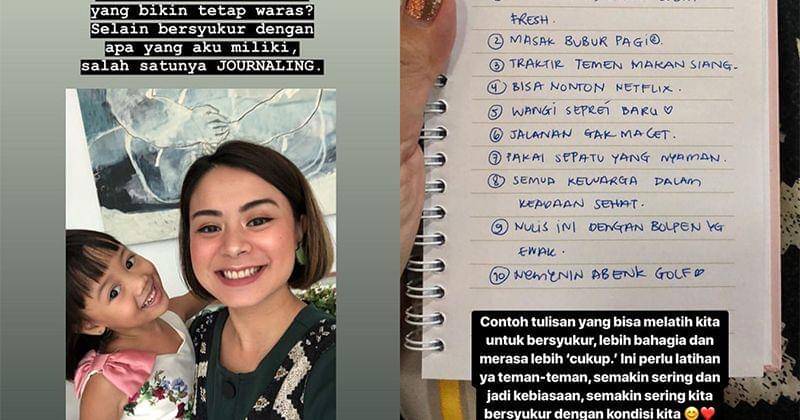 yang bikin tetap waras?
Selain bersyukur dengan
apa yang aku miliki,
salah satunya JOURNALING.
FRESH.
② MASAK BUBUR PAGI².
③ TRAKTIR TEMEN MAKAN SIANG.
④ BISA NONTON NETFLIX.
⑤ WANGI SEPREI BARU ♡
⑥ JALANAN GAK MACET.
⑦ PAKAI SEPATU YANG NYAMAN.
⑧ SEMUA KELUARGA DALAM
KEADAAN SEHAT.
⑨ NULIS INI DENGAN BOLPEN YG
ENAK.
⑩ NEMENIN ABENK GOLF ♡
Contoh tulisan yang bisa melatih kita
untuk bersyukur, lebih bahagia dan
merasa lebih ‘cukup.’ Ini perlu latihan
ya teman-teman, semakin sering dan
jadi kebiasaan, semakin sering kita
bersyukur dengan kondisi kita 😊❤️